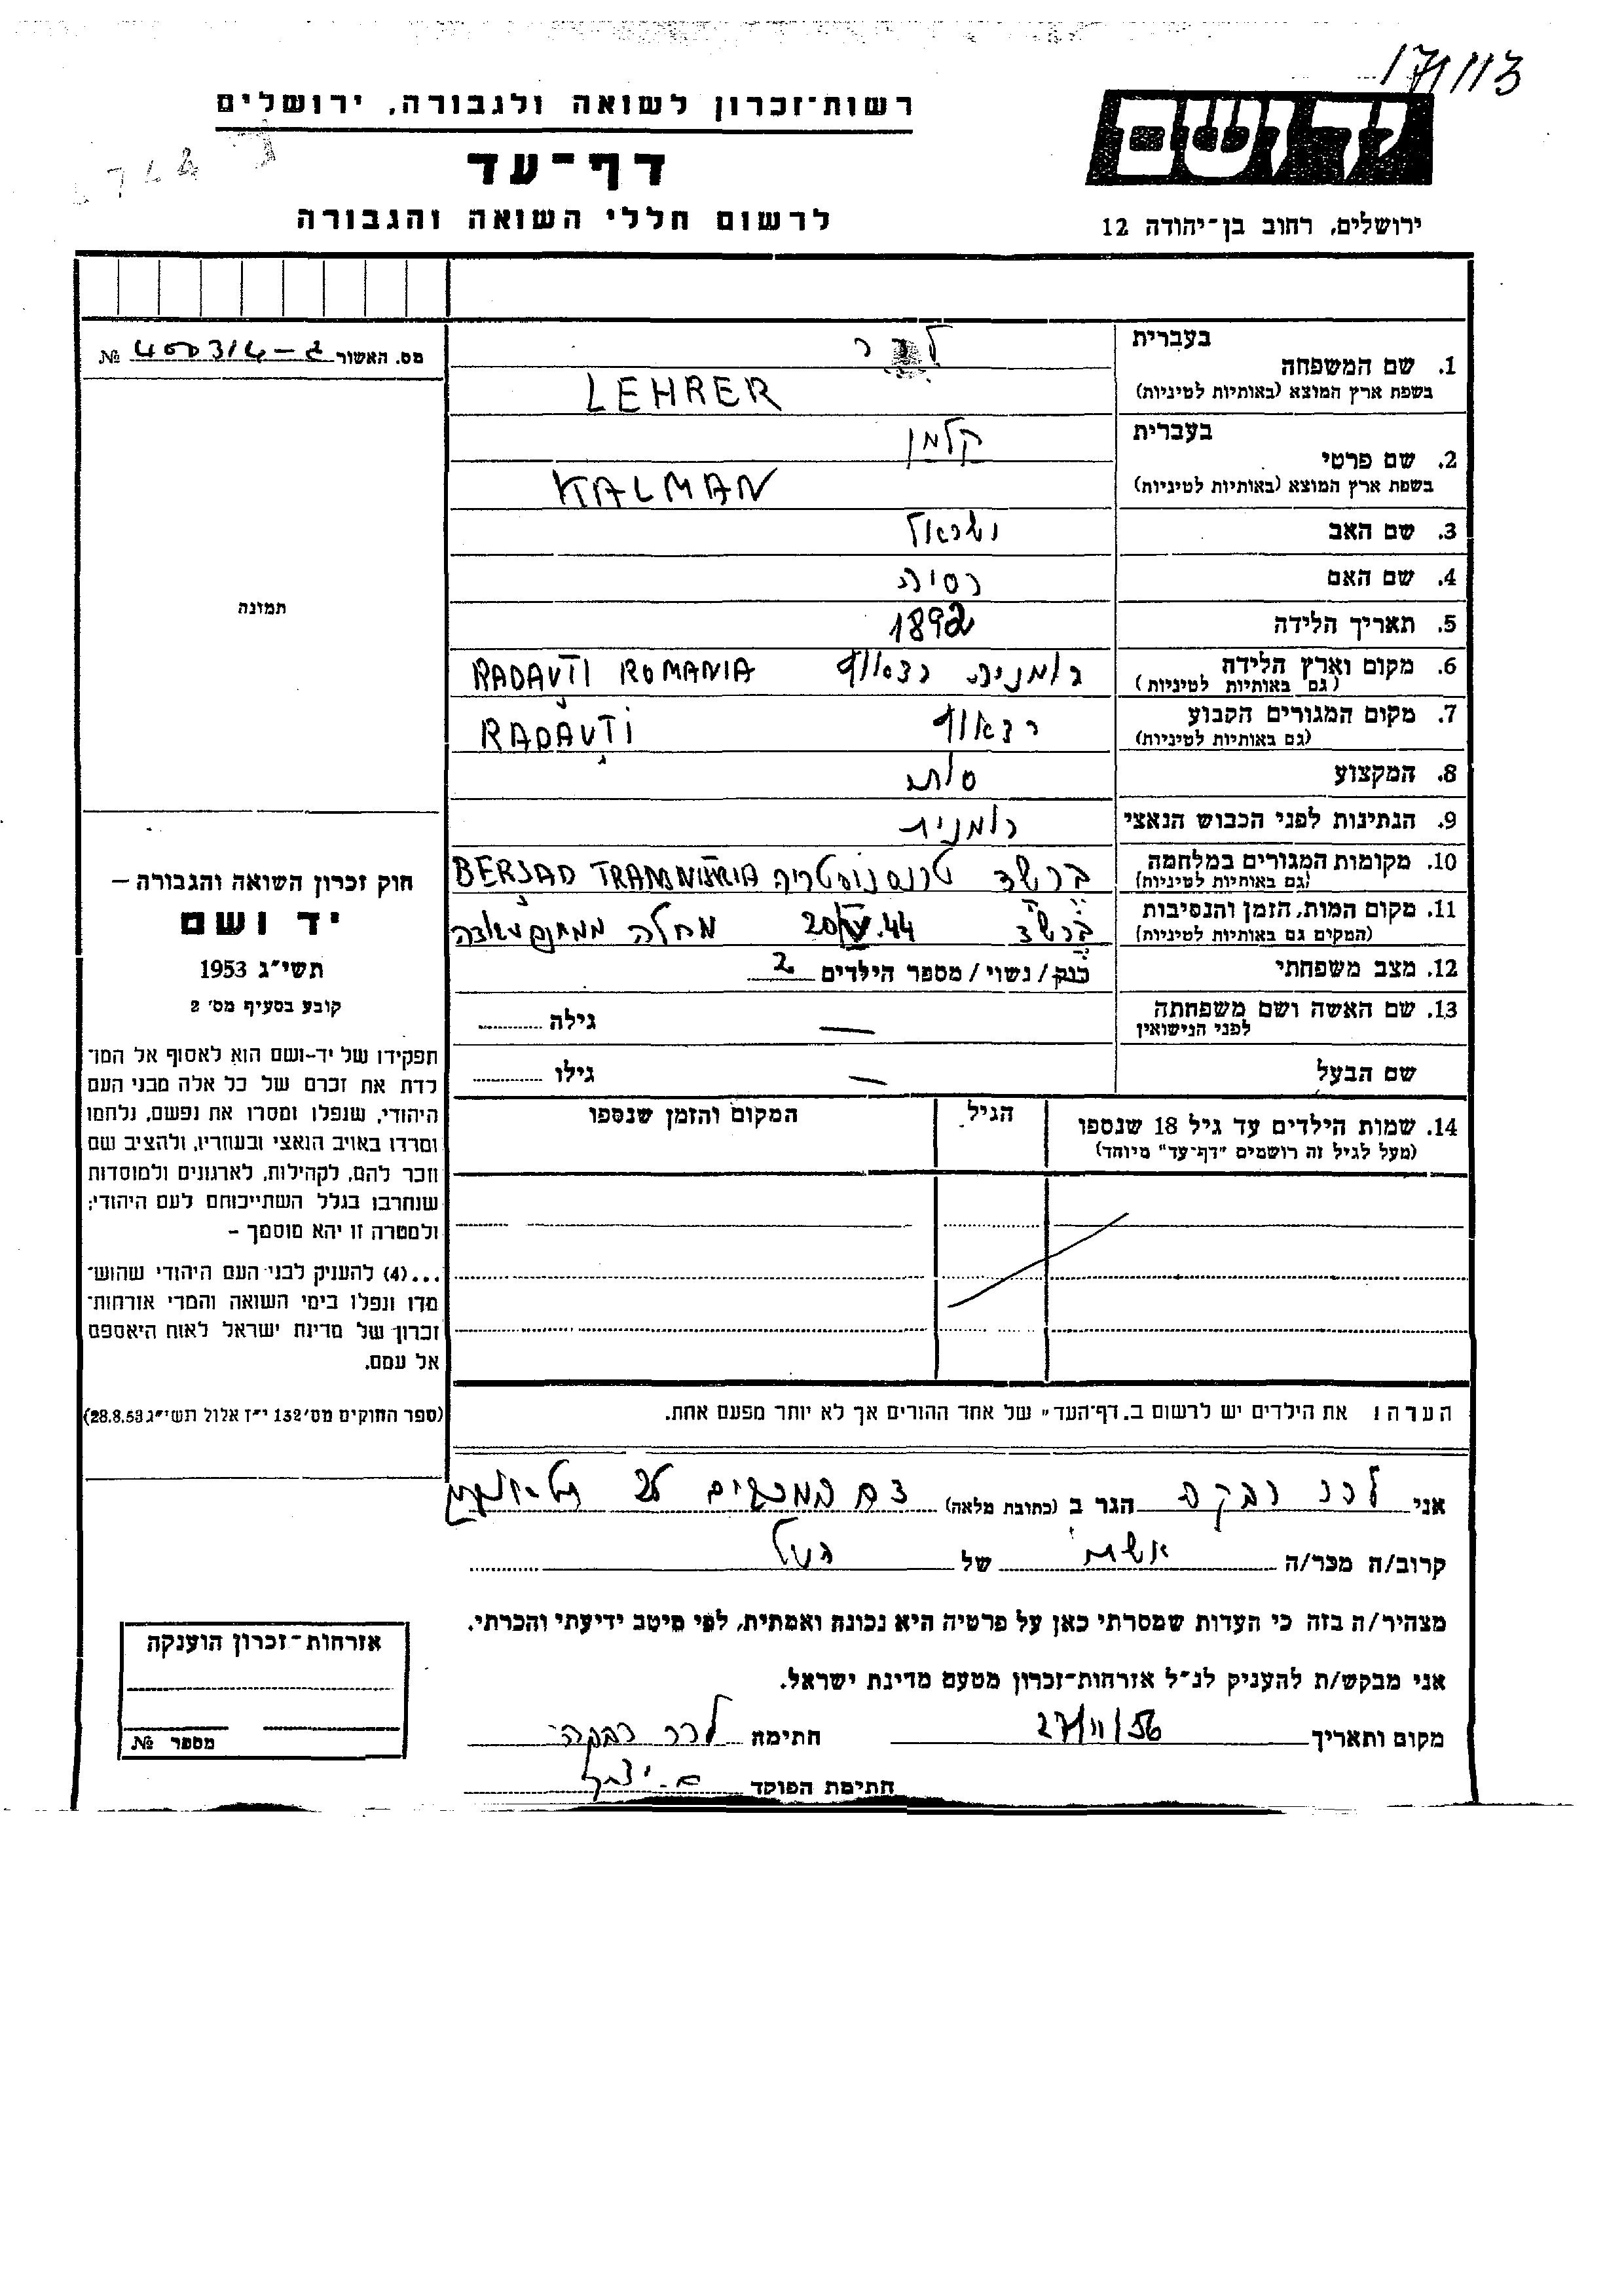 171113
רשות־זכרון לשואה ולגבורה, ירושלים
דף־עד
לרשום חללי השואה והגבורה
יד ושם
ירושלים, רחוב בן־יהודה 12
מס. האשור ג-400314 №
תמונה
חוק זכרון השואה והגבורה –
יד ושם
תשי״ג 1953
קובע בסעיף מס׳ 2
תפקידו של יד-ושם הוא לאסוף אל המו־
לדת את זכרם של כל אלה מבני העם
היהודי, שנפלו ומסרו את נפשם, נלחמו
ומרדו באויב הנאצי ובעוזריו, ולהציב שם
וזכר להם, לקהילות, לארגונים ולמוסדות
שנחרבו בגלל השתייכותם לעם היהודי;
ולמטרה זו יהא מוסמך –
...(4) להעניק לבני העם היהודי שהוש־
מדו ונפלו בימי השואה והמרי אזרחות־
זכרון של מדינת ישראל לאות היאספם
אל עמם.
(ספר החוקים מס׳ 132 י״ז אלול תשי״ג 28.8.53)
בעברית
1. שם המשפחה לרר
(בשפת ארץ המוצא (באותיות לטיניות LEHRER
בעברית קלמן
2. שם פרטי
(בשפת ארץ המוצא (באותיות לטיניות KALMAN
3. שם האב ישראל
4. שם האם רסיה
5. תאריך הלידה 1892
6. מקום וארץ הלידה רומניה רדאוץ RADAUTI ROMANIA
(גם באותיות לטיניות)
7. מקום המגורים הקבוע רדאוץ RADAUTI
(גם באותיות לטיניות)
8. המקצוע סוחר
9. הנתינות לפני הכבוש הנאצי רומנית
10. מקומות המגורים במלחמה ברשד טרנסניסטריה BERSAD
(גם באותיות לטיניות)
11. מקום המות, הזמן והנסיבות ברשד 20/IV.44 מחלה
(המקום גם באותיות לטיניות)
12. מצב משפחתי רווק/נשוי/מספר הילדים 2
13. שם האשה ושם משפחתה — גילה
לפני הנישואין
שם הבעל — גילו
14. שמות הילדים עד גיל 18 שנספו הגיל המקום והזמן שנספו
(מעל לגיל זה רושמים ״דף־עד״ מיוחד)
הערה: את הילדים יש לרשום ב״דף־העד״ של אחד ההורים אך לא יותר מפעם אחת.
אני לרר רבקה הגר ב (כתובת מלאה)
קרוב/ה מכר/ה אשה של הנ״ל
מצהיר/ה בזה כי העדות שמסרתי כאן על פרטיה היא נכונה ואמתית, לפי מיטב ידיעתי והכרתי.
אני מבקש/ת להעניק לנ״ל אזרחות־זכרון מטעם מדינת ישראל.
מקום ותאריך 27/11/56 חתימה לרר רבקה
חתימת הפוקד
אזרחות־זכרון הוענקה
מספר №